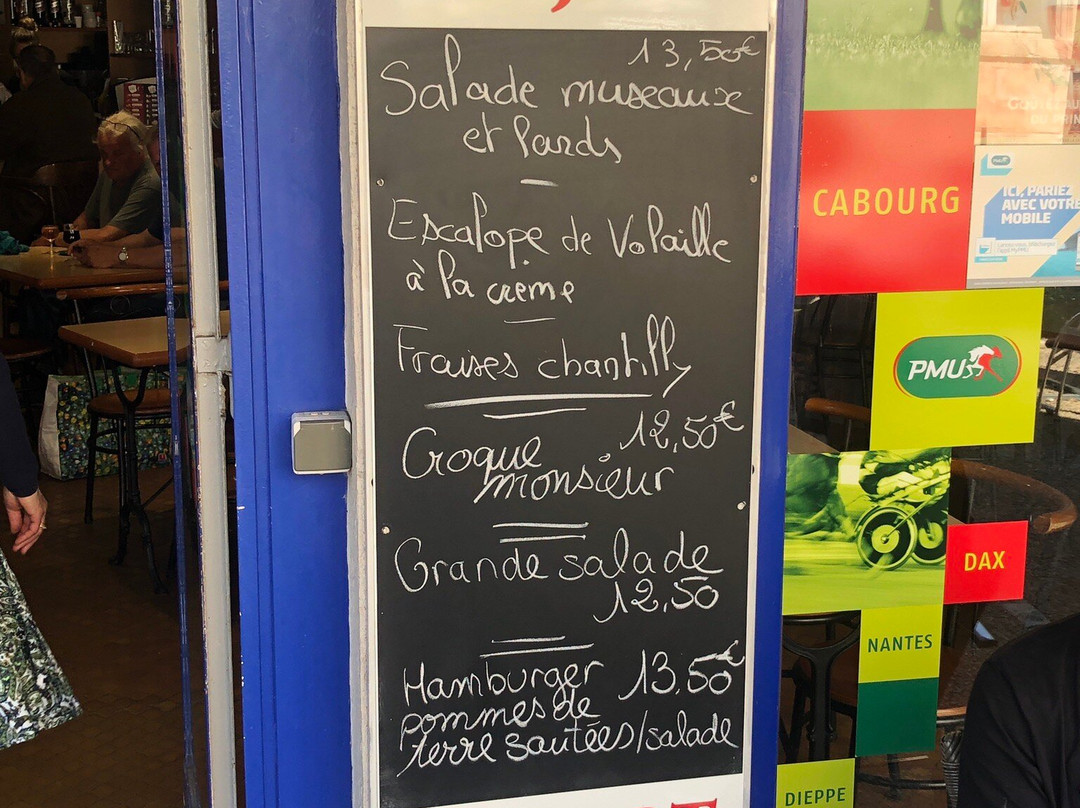 13,50€
Salade museaux
et lards
Escalope de Volaille
à la creme
Fraises chantilly
12,50€
Croque
monsieur
Grande salade
12,50
Hamburger 13,50€
pommes de
terre sautées/salade
CABOURG
ICI, PARIEZ
AVEC VOTRE
MOBILE
PMU
DAX
NANTES
DIEPPE